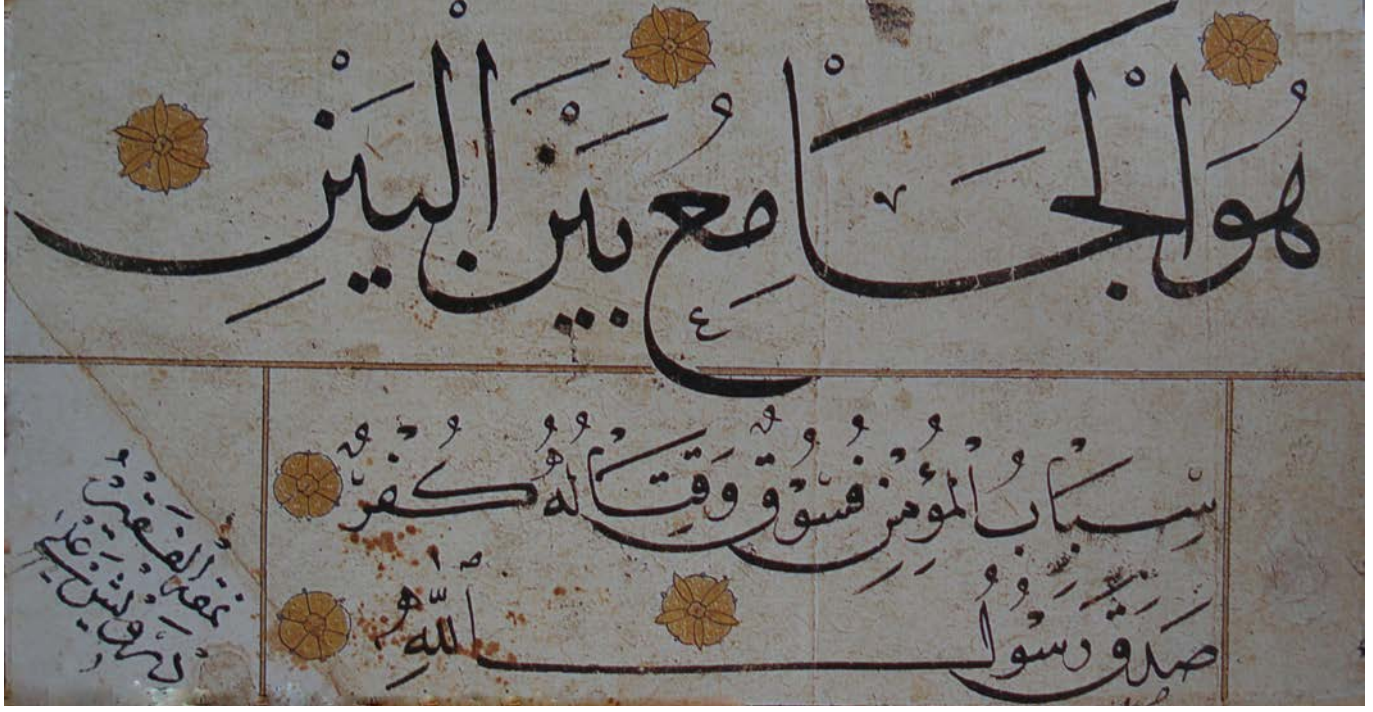 هُوَ الْجَامِعُ بَيْنَ الْبَيْنِ
سِبَابُ الْمُؤْمِنِ فُسُوقٌ وَقِتَالُهُ كُفْرٌ
صَدَقَ رَسُولُ اللّٰهِ
نمقه الفقير
درويش علي